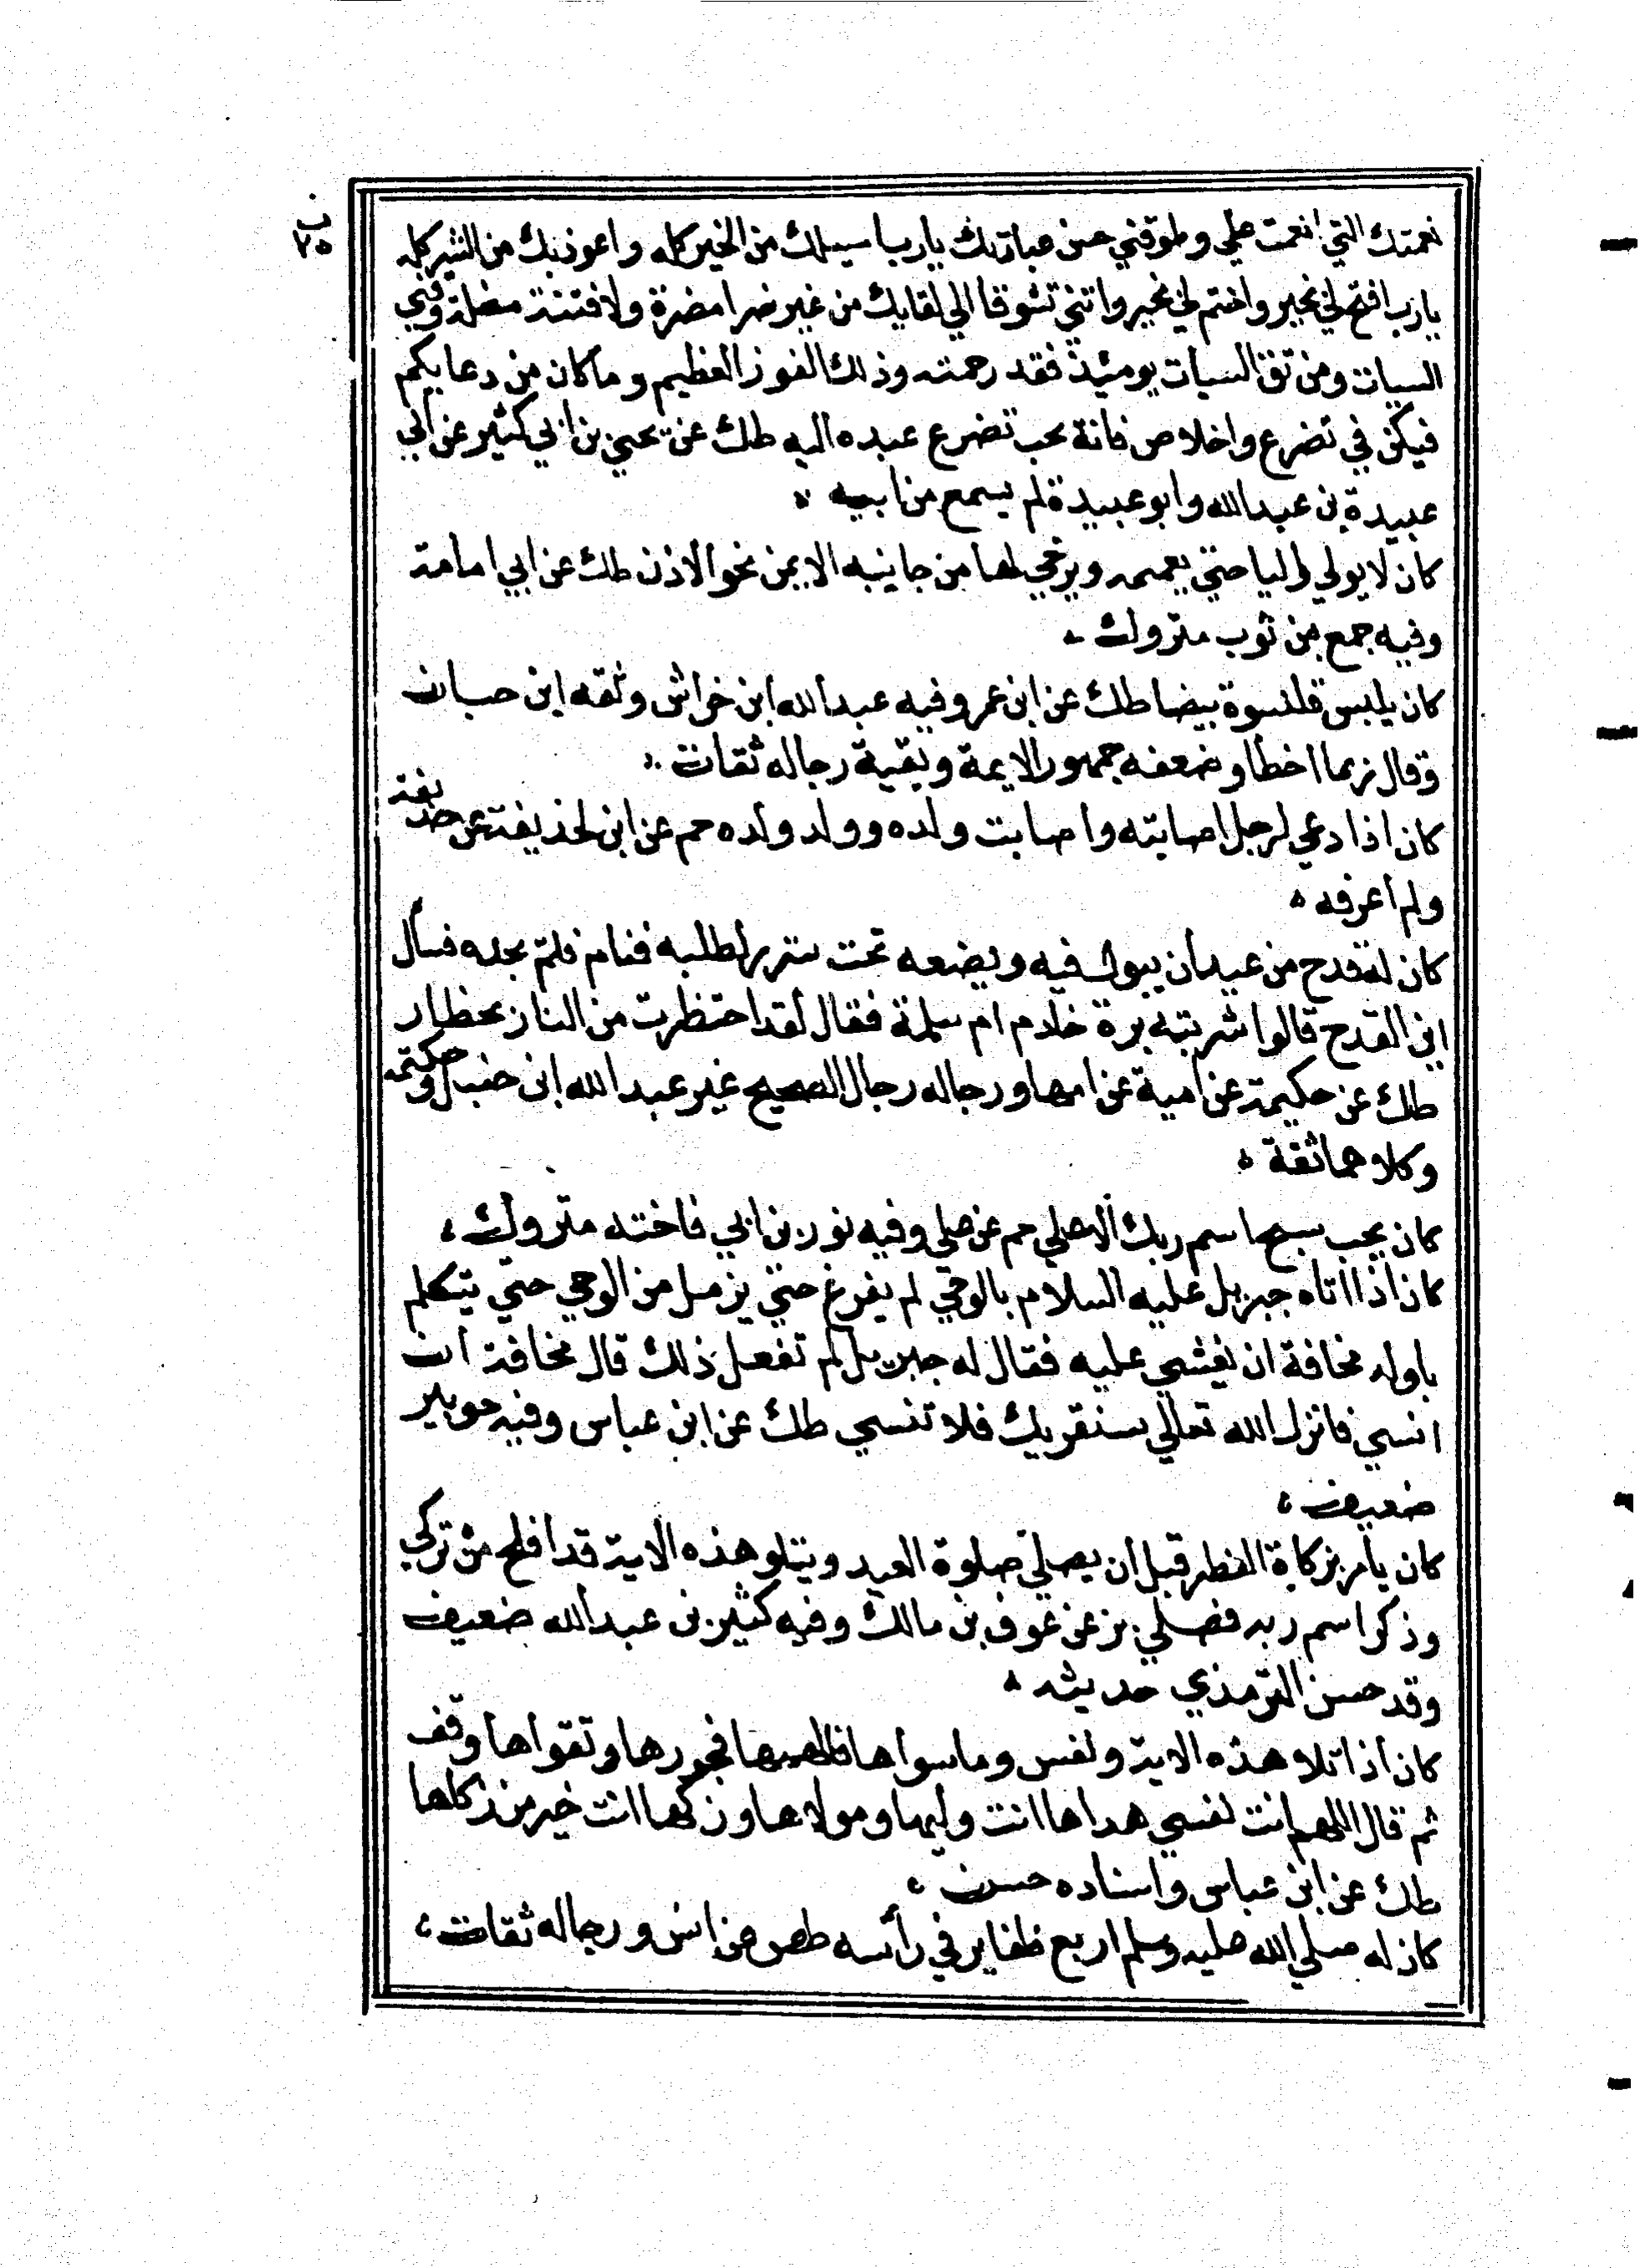 ب ٧٥
نعمتك التي انعمت علي وطوقني حسن عبادتك يارب اسيلك من الخير كله واعوذ بك من الشر كله
يارب افتح لي بخير واختم لي بخير واتني تشوقا الي لقايك من غير ضرا مضرة ولا فتنة مضلة وقني
السيات ومن تق السيات يوميذ فقد رحمته وذلك الفوز العظيم وما كان من دعايكم
فيكن في تضرع واخلاص فانه يحب تضرع عبده اليه طك عن يحيي بن ابي كثير عن ابي
عبيدة بن عبد الله وابو عبيدة لم يسمع من ابيه
كان لا يولي واليا حتي يعممه ويرخي لها من جانبه الايمن نحو الاذن طك عن ابي امامة
وفيه جمع بن ثوب متروك
كان يلبس قلنسوة بيضا طك عن ابن عمر وفيه عبد الله ابن خراش وثقه ابن حبان
وقال ربما اخطا وضعفه جمهور الايمة وبقية رجاله ثقات
كان اذا دعي لرجل اصابته واصابت ولده وولد ولده حم عن ابن لحذيفة عن حذيفة
ولم اعرفه
كان له قدح من عيدان يبول فيه ويضعه تحت سريره لطلبه فنام فلم يجده فسال
اين القدح قالوا شربته برة خادم ام سلمة فقال لقد احتظرت من النار بحظار
طك عن حكيمة عن امية عن امها ورجاله رجال الصحيح غير عبد الله ابن حنبل وحكيمة
وكلاهما ثقة
كان يحب سبح اسم ربك الاعلي حم عن علي وفيه نوربن ابي فاخته متروك
كان اذا اتاه جبريل عليه السلام بالوحي لم يفرغ حتي يزمل من الوحي حتي يتكلم
باوله مخافة ان يغشي عليه فقال له جبريل لم تفعل ذلك قال مخافة ان
انسي فانزل الله تعالي سنقريك فلا تنسي طك عن ابن عباس وفيه جويبر
ضعيف
كان يأمر بزكاة الفطر قبل ان يصلي صلوة العيد ويتلو هذه الاية قد افلح من تزكي
وذكر اسم ربه فصلي بز عن عوف بن مالك وفيه كثير بن عبد الله ضعيف
وقد حسن الترمذي حديثه
كان اذا تلا هذه الاية ونفس وما سواها فالهمها فجورها وتقواها وقف
ثم قال اللهم انت نفسي هداها انت وليها ومولاها وزكها انت خير من زكاها
طك عن ابن عباس واسناده حسن
كان له صلي الله عليه وسلم اربع ظفاير في رأسه طص عن انس ورجاله ثقات